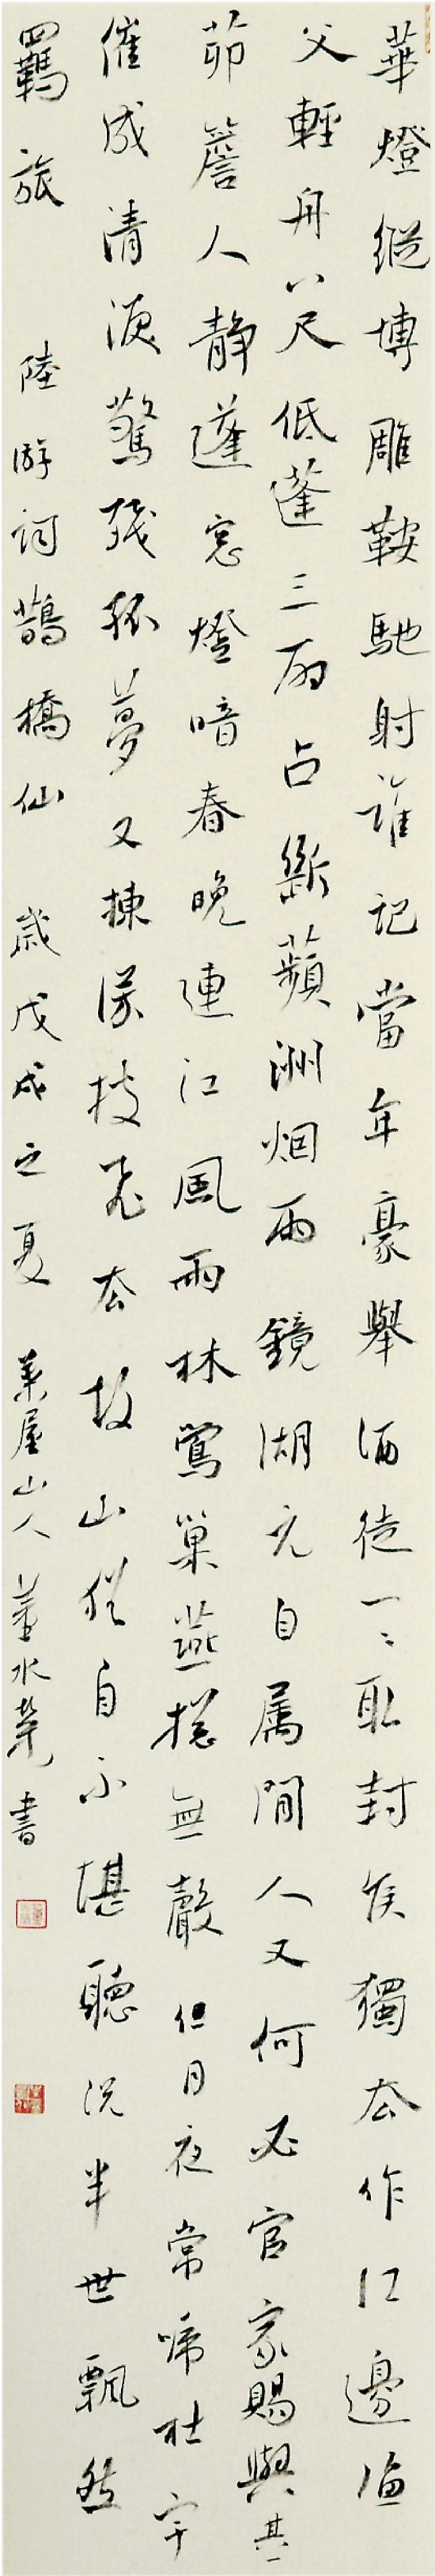 華燈縱博雕鞍馳射誰記當年豪舉酒徒一〻取封侯獨去作江邊漁
父輕舟八尺低蓬三扇占斷蘋洲烟雨鏡湖元自屬閒人又何必官家賜與其一
茆簷人靜蓬窓燈暗春晚連江風雨林鶯巢燕揔無聲但月夜常啼杜宇
催成清淚驚殘孤夢又揀深枝飛去故山猶自不堪聽況半世飄然
羈旅 陸游詞鵲橋仙 歲戊戌之夏 葉屋山人 書